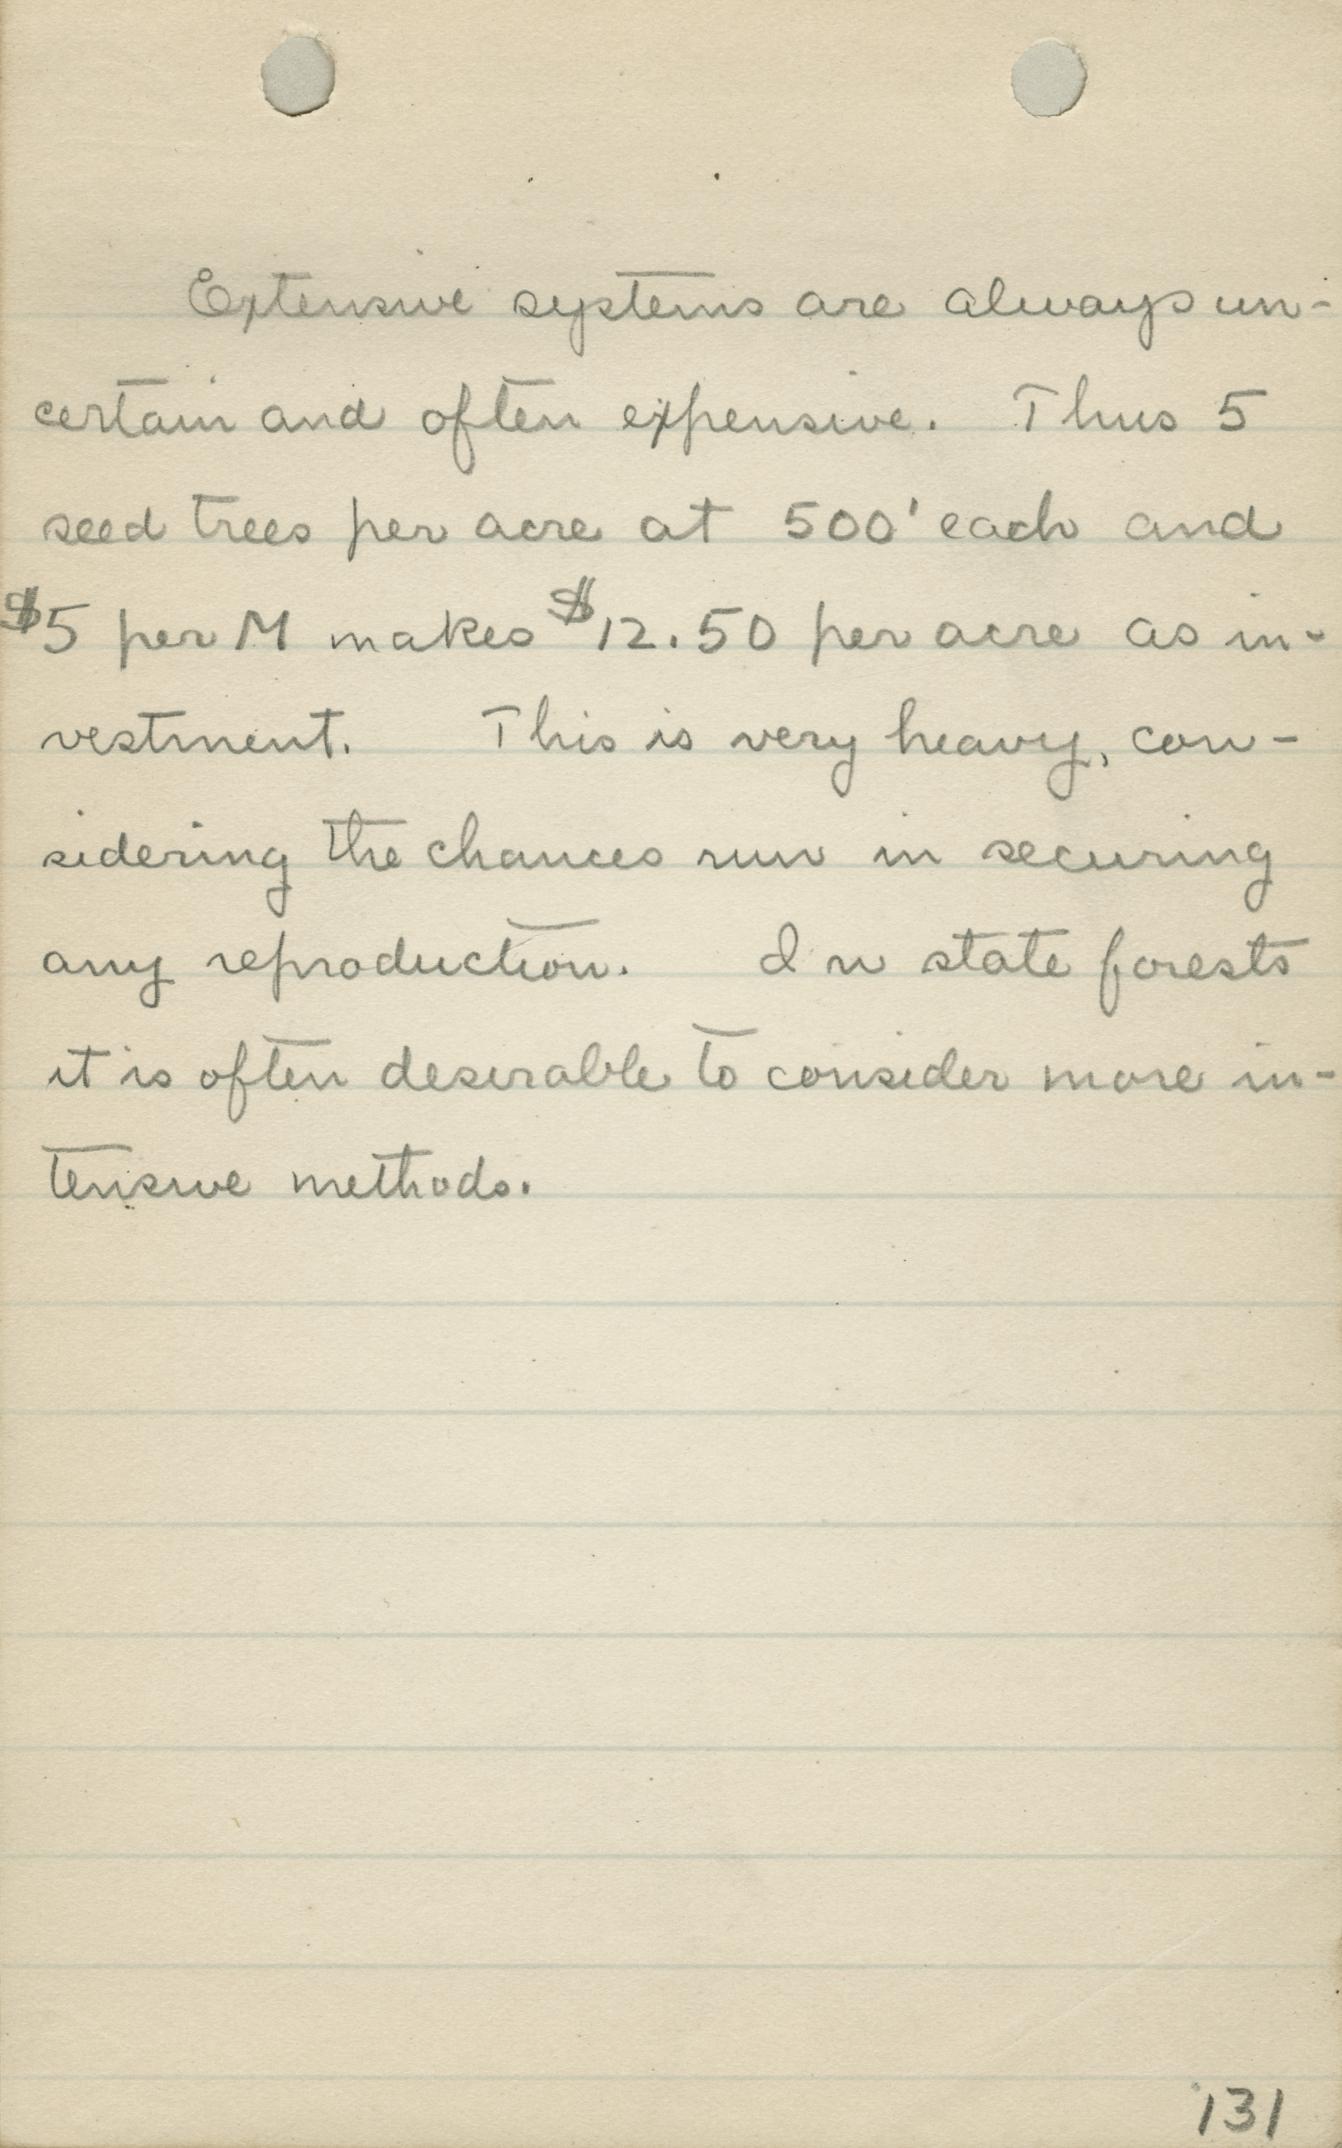 Extensive systems are always un-
certain and often expensive. Thus 5
seed trees per acre at 500' each and
$5 per M makes $12.50 per acre as in-
vestment. This is very heavy, con-
sidering the chances run in securing
any reproduction. In state forests
it is often desirable to consider more in-
tensive methods.
131